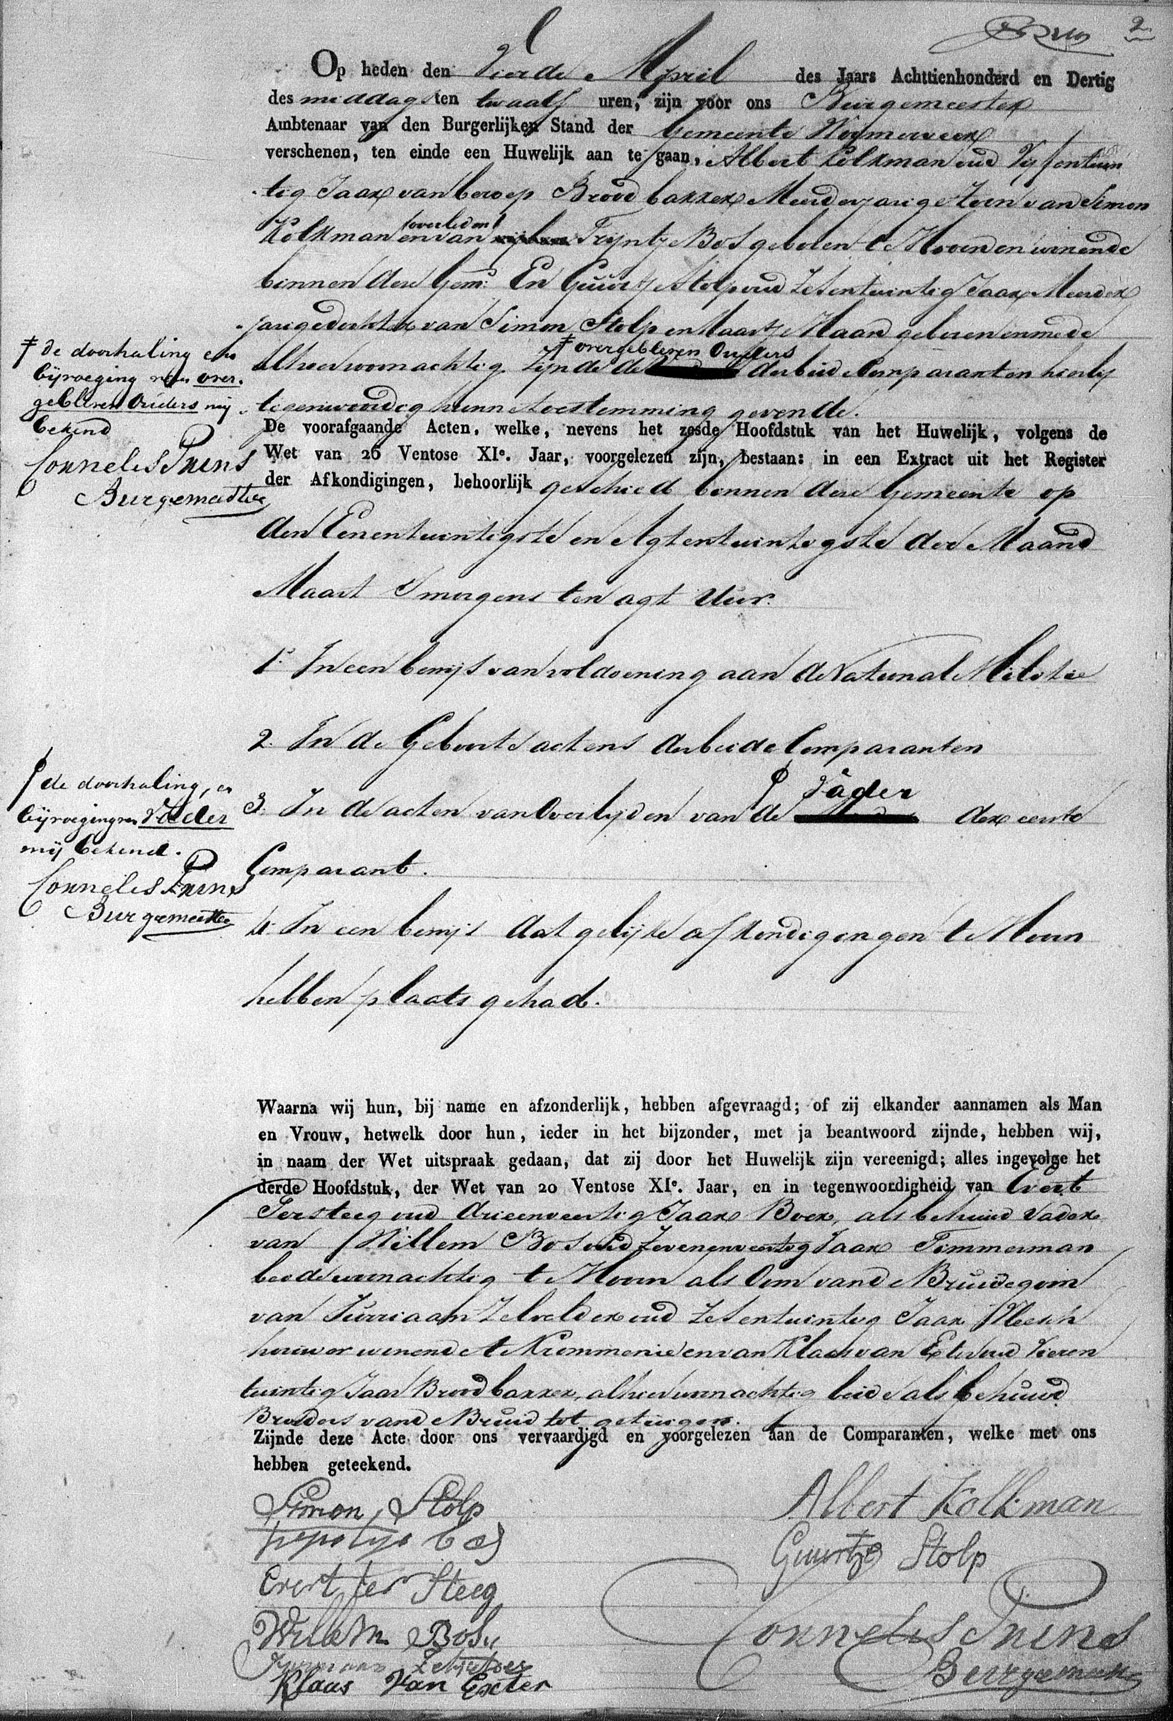 2
Op heden den Vierde April des Jaars Achttienhonderd en Dertig
des middags ten twaalf uren, zijn voor ons Burgemeester
Ambtenaar van den Burgerlijken Stand der Gemeente Wormerveer
verschenen, ten einde een Huwelijk aan te gaan, Albert Kolkman oud Vijfentwin
tig Jaar van beroep Broodbakker Meerderjarige Zoon van Simon
Kolkman (overleden) en van Trijntje Bos geboren te Hoorn en wonende
binnen deze Gem: En Guurtje Stolp oud Zesentwintig Jaar Meerder
jarige dochter van Simon Stolp en Maartje Haan geboren en mede
alhier woonachtig Zijnde de ‡ overgebleven Ouders der beide Comparanten hierbij
tegenwoordig hunne toestemming gevende.
‡ de doorhaling en
bijvoeging van over
gebleven Ouders mij
bekend
Cornelis Prins
Burgemeester
De voorafgaande Acten, welke, nevens het zesde Hoofdstuk van het Huwelijk, volgens de
Wet van 26 Ventose XIe. Jaar, voorgelezen zijn, bestaan: in een Extract uit het Register
der Afkondigingen, behoorlijk geschied binnen deze Gemeente op
den Eenentwintigste en Agtentwintigste der Maand
Maart s'morgens ten agt Uur.
1e. In een bewijs van voldoening aan de Nationale Militie
2. In de Geboorte actens der beide Comparanten
3. In de acten van Overlijden van de Vader der eerste
Comparant.
de doorhaling, en
bijvoeging van Vader
mij bekend.
Cornelis Prins
Burgemeester
4. In een bewijs dat gelijke afkondigingen te Hoorn
hebben plaats gehad.
Waarna wij hun, bij name en afzonderlijk, hebben afgevraagd; of zij elkander aannamen als Man
en Vrouw, hetwelk door hun, ieder in het bijzonder, met ja beantwoord zijnde, hebben wij,
in naam der Wet uitspraak gedaan, dat zij door het Huwelijk zijn vereenigd; alles ingevolge het
derde Hoofdstuk, der Wet van 20 Ventose XIe. Jaar, en in tegenwoordigheid van Evert
Tersteeg oud drieenveertig Jaar Boer, als behuwd Vader
van Willem Bos oud Zevenenveertig Jaar Timmerman
beide woonachtig te Hoorn als Oom van de Bruidegom
van Jurriaan Zelvelder oud Zesentwintig Jaar Vleesch
houwer wonende te Krommenie en van Klaas van Exter oud Vieren
twintig Jaar Broodbakker, alhier woonachtig beide als behuwd
Broeders van de Bruid tot getuigen.
Zijnde deze Acte door ons vervaardigd en voorgelezen aan de Comparanten, welke met ons
hebben geteekend.
Simon Stolp
Albert Kolkman
Guurtje Stolp
Evert ter Steeg
Willem Bos
Cornelis Prins
Burgemeester
Klaas Van Exter